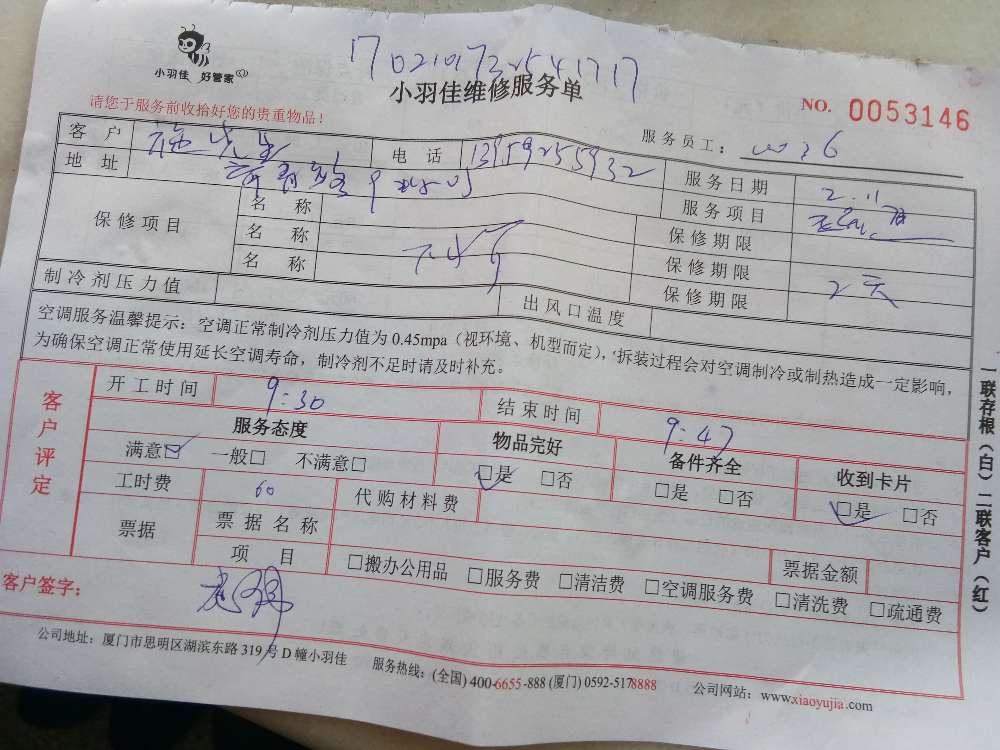 小羽佳 好管家
1702101732541717
小羽佳维修服务单
NO. 0053146
请您于服务前收拾好您的贵重物品！
服务员工：
客户 施先生 电话 13959255932 服务日期 2.11
地址 服务项目
保修项目 名称 保修期限
名称 保修期限
名称 保修期限 2天
制冷剂压力值 出风口温度
空调服务温馨提示：空调正常制冷剂压力值为0.45mpa（视环境、机型而定），拆装过程会对空调制冷或制热造成一定影响，
为确保空调正常使用延长空调寿命，制冷剂不足时请及时补充。
客户评定
开工时间 9:30 结束时间 9:47
服务态度 物品完好 备件齐全 收到卡片
满意☑ 一般□ 不满意□ □是 □否 □是 □否 □是 □否
工时费 60 代购材料费
票据 票据名称
项目 □搬办公用品 □服务费 □清洁费 □空调服务费 □清洗费 □疏通费 票据金额
客户签字：
公司地址：厦门市思明区湖滨东路319号D幢小羽佳 服务热线：(全国) 400-6655-888 (厦门) 0592-5178888 公司网站：www.xiaoyujia.com
一联存根（白）二联客户（红）